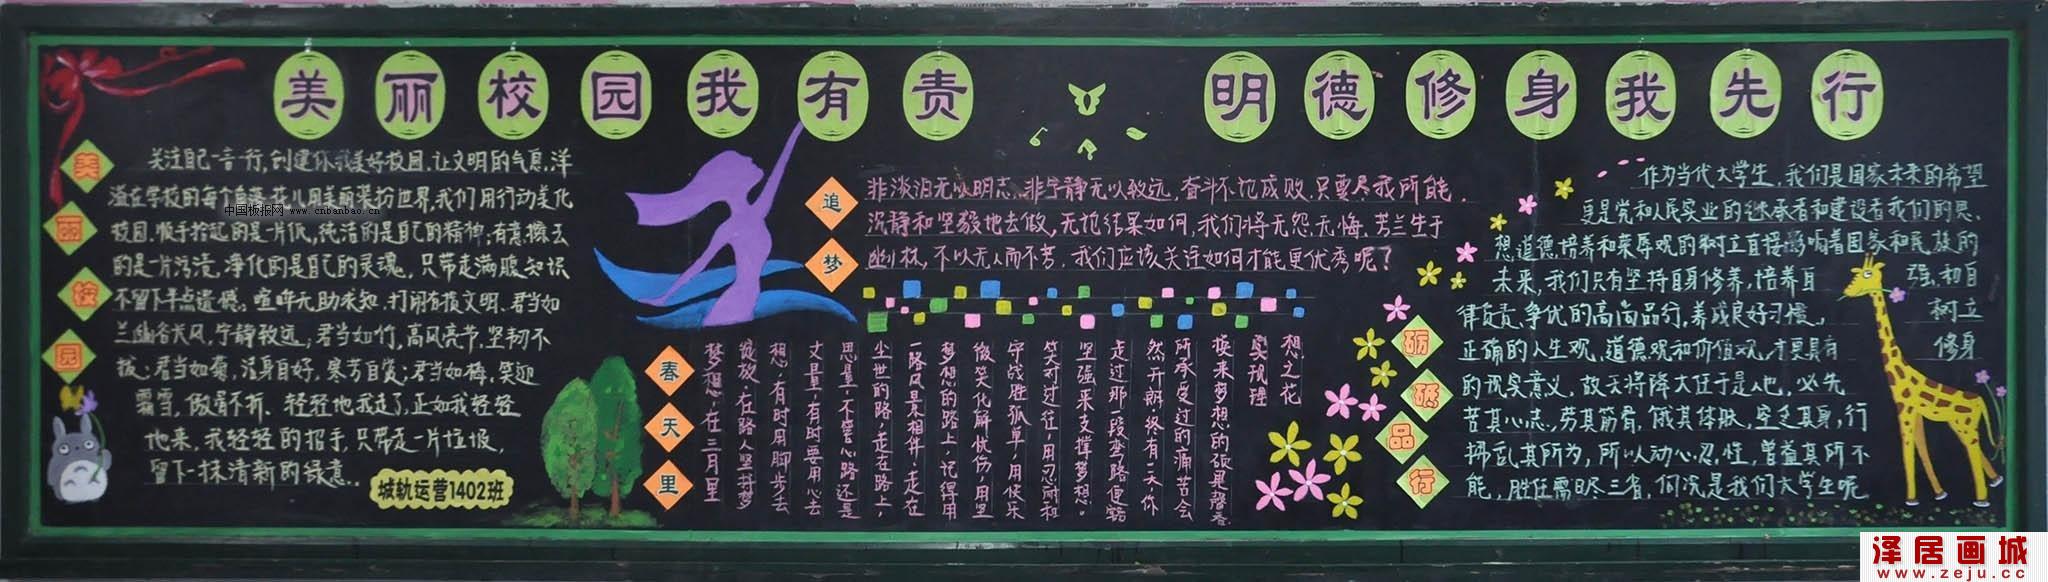 美丽校园我有责
明德修身我先行
美丽校园
关注自己一言一行,创建你我美好校园.让文明的气息,洋
溢在学校的每个角落.花儿用美丽装扮世界,我们用行动美化
校园.顺手拾起的是一片纸,纯洁的是自己的精神;有意擦去
的是一片污渍,净化的是自己的灵魂。只带走满腹知识
不留下半点遗憾。喧哗无助求知.打闹有损文明.君当如
兰幽谷长风,宁静致远;君当如竹,高风亮节.坚韧不
拔;君当如菊,洁身自好,寒芳自赏;君当如梅,笑迎
霜雪,傲骨不折.轻轻地我走了,正如我轻轻
地来,我轻轻的招手,只带走一片垃圾,
留下一抹清新的绿意。
城轨运营1402班
中国板报网
www.cnbanbao.cn
追梦
非淡泊无以明志,非宁静无以致远,奋斗不论成败.只要尽我所能,
沉静和坚毅地去做,无论结果如何,我们将无怨无悔.芳兰生于
幽林,不以无人而不芳.我们应该关注如何才能更优秀呢?
春天里
想之花
实现理
换来梦想的硕果馨香.
所承受过的痛苦会
然开朗.终有一天你
走过那一段弯路便豁
坚强来支撑梦想。
笑对过往,用忍耐和
守战胜孤单,用快乐
微笑化解忧伤,用坚
梦想的路上,记得用
一路风景相伴,走在
尘世的路,走在路上,
思量,不管心路还是
丈量,有时要用心去
想,有时用脚步去
绽放.在路人坚持梦
梦想,在三月里
砺砥品行
作为当代大学生,我们是国家未来的希望
更是党和人民实业的继承者和建设者我们的思
想道德培养和荣辱观的树立直接影响着国家和民族的
未来,我们只有坚持自身修养,培养自强.和自
律负责、争优的高尚品行,养成良好习惯,树立
正确的人生观,道德观和价值观,才更具有修身
的现实意义,故天将降大任于是人也,必先
苦其心志,劳其筋骨,饿其体肤,空乏其身,行
拂乱其所为,所以动心忍性,曾益其所不
能,胜任需日尽三省,何况是我们大学生呢
泽居画城
www.zeju.cc